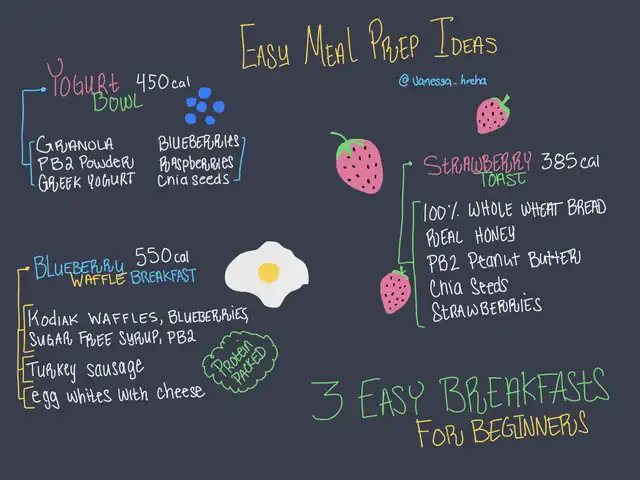 EASY MEAL PREP IDEAS
@vanessa_hreha
YOGURT 450 cal
BOWL
GRANOLA BLUEBERRIES
PB2 POWDER RASPBERRIES
GREEK YOGURT Chia seeds
STRAWBERRY 385 cal
TOAST
100% WHOLE WHEAT BREAD
REAL HONEY
PB2 PEANUT BUTTER
Chia Seeds
STRAWBERRIES
BLUEBERRY 550 cal
WAFFLE BREAKFAST
KODIAK WAFFLES, BLUEBERRIES,
SUGAR FREE SYRUP, PB2
Turkey sausage
egg whites with cheese
PROTEIN
PACKED
3 EASY BREAKFASTS
FOR BEGINNERS